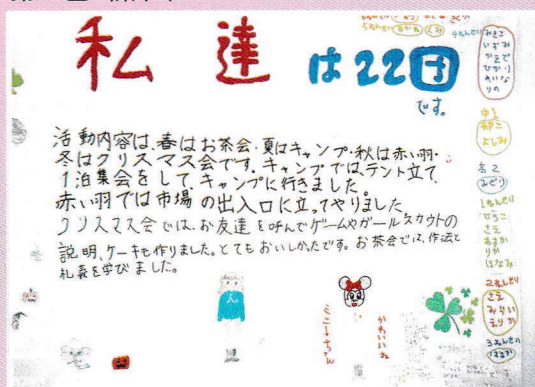 私達は22団
です。
活動内容は、春はお茶会・夏はキャンプ・秋は赤い羽・
冬はクリスマス会です。キャンプでは、テント立て、
1泊集会をして、キャンプに行きました。
赤い羽では市場の出入口に立ってやりました
クリスマス会では、お友達を呼んでゲームやガールスカウトの
説明、ケーキも作りました。とてもおいしかったです。お茶会では、作法と
礼義を学びました。
かわいいね
みさこ
いずみ
かえで
ひかり
めいな
りの
中1
よしみ
高2
みどり
1ねんせい
さえ
あすか
りか
はなみ
2ねんせい
さえ
みらい
えりか
3ねんせい
はるか